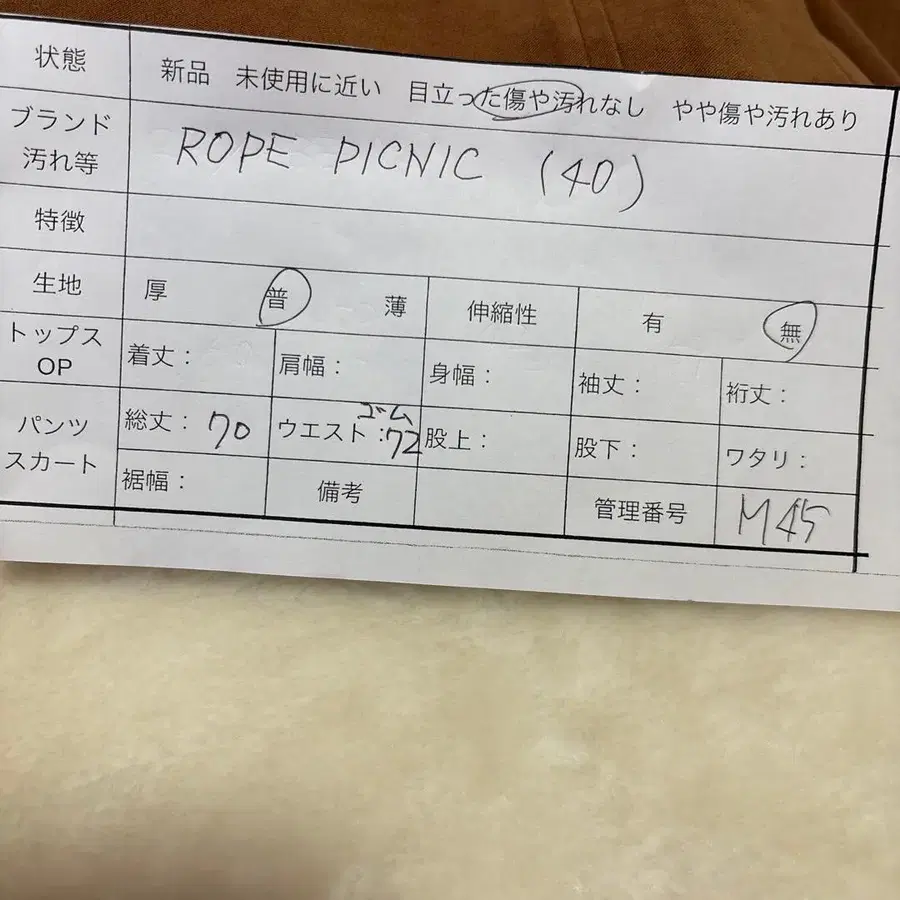 状態 新品 未使用に近い 目立った傷や汚れなし やや傷や汚れあり
ブランド
汚れ等 ROPE PICNIC (40)
特徴
生地 厚 普 薄 伸縮性 有 無
トップス
OP 着丈: 肩幅: 身幅: 袖丈: 裄丈:
パンツ
スカート 総丈: 70 ウエスト: ゴム 72 股上: 股下: ワタリ:
裾幅: 備考 管理番号 M45